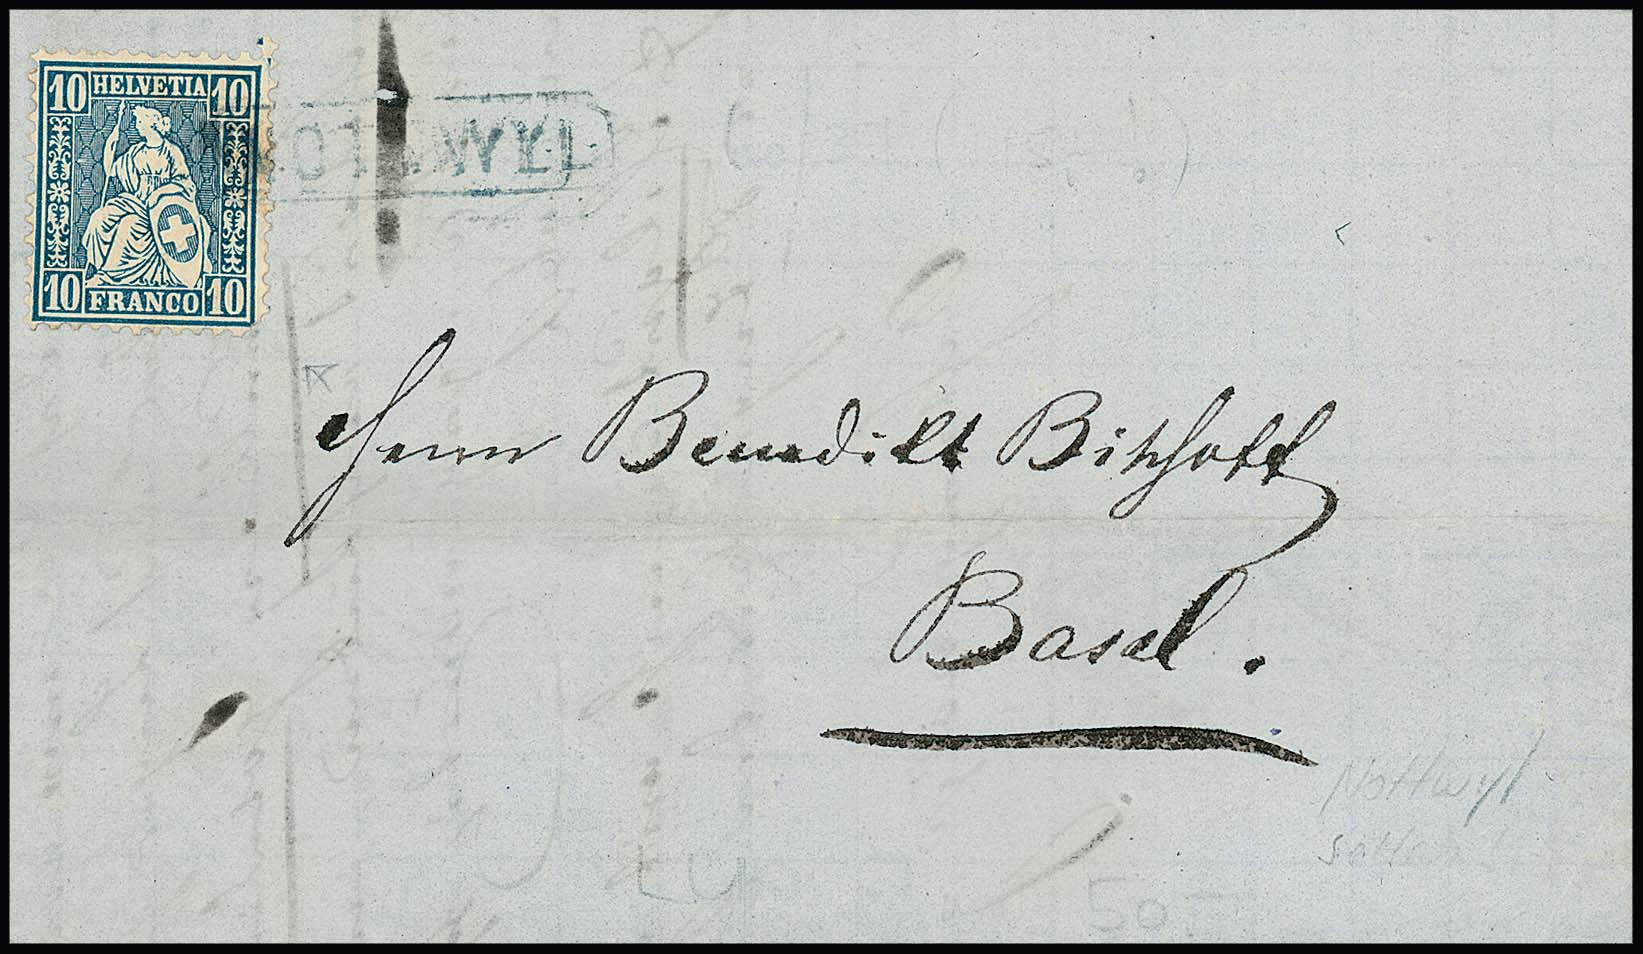 10 HELVETIA 10
NOTTWYL
10 FRANCO 10
Herrn Benedikt Bischoff
Basel.
Nottwyl
LU
50.–